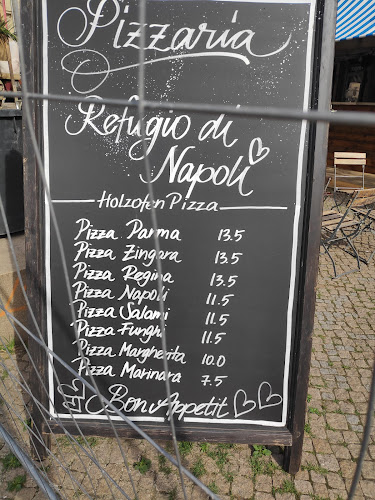 Pizzaria
Refugio di
Napoli
Holzofen Pizza
Pizza Parma 13.5
Pizza Zingara 13.5
Pizza Regina 13.5
Pizza Napoli 11.5
Pizza Salami 11.5
Pizza Funghi 11.5
Pizza Margherita 10.0
Pizza Marinara 7.5
Bon Appetit